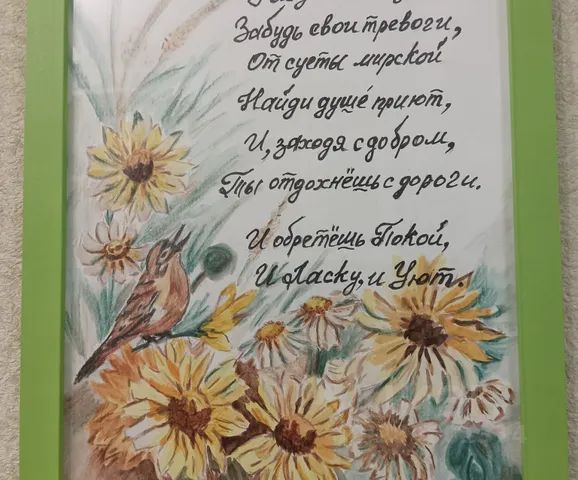 Забудь свои тревоги,
От суеты мирской
Найди душе́ приют,
И, заходя с добром,
Ты отдохнёшь с дороги.
И обретёшь Покой,
И Ласку, и Уют.